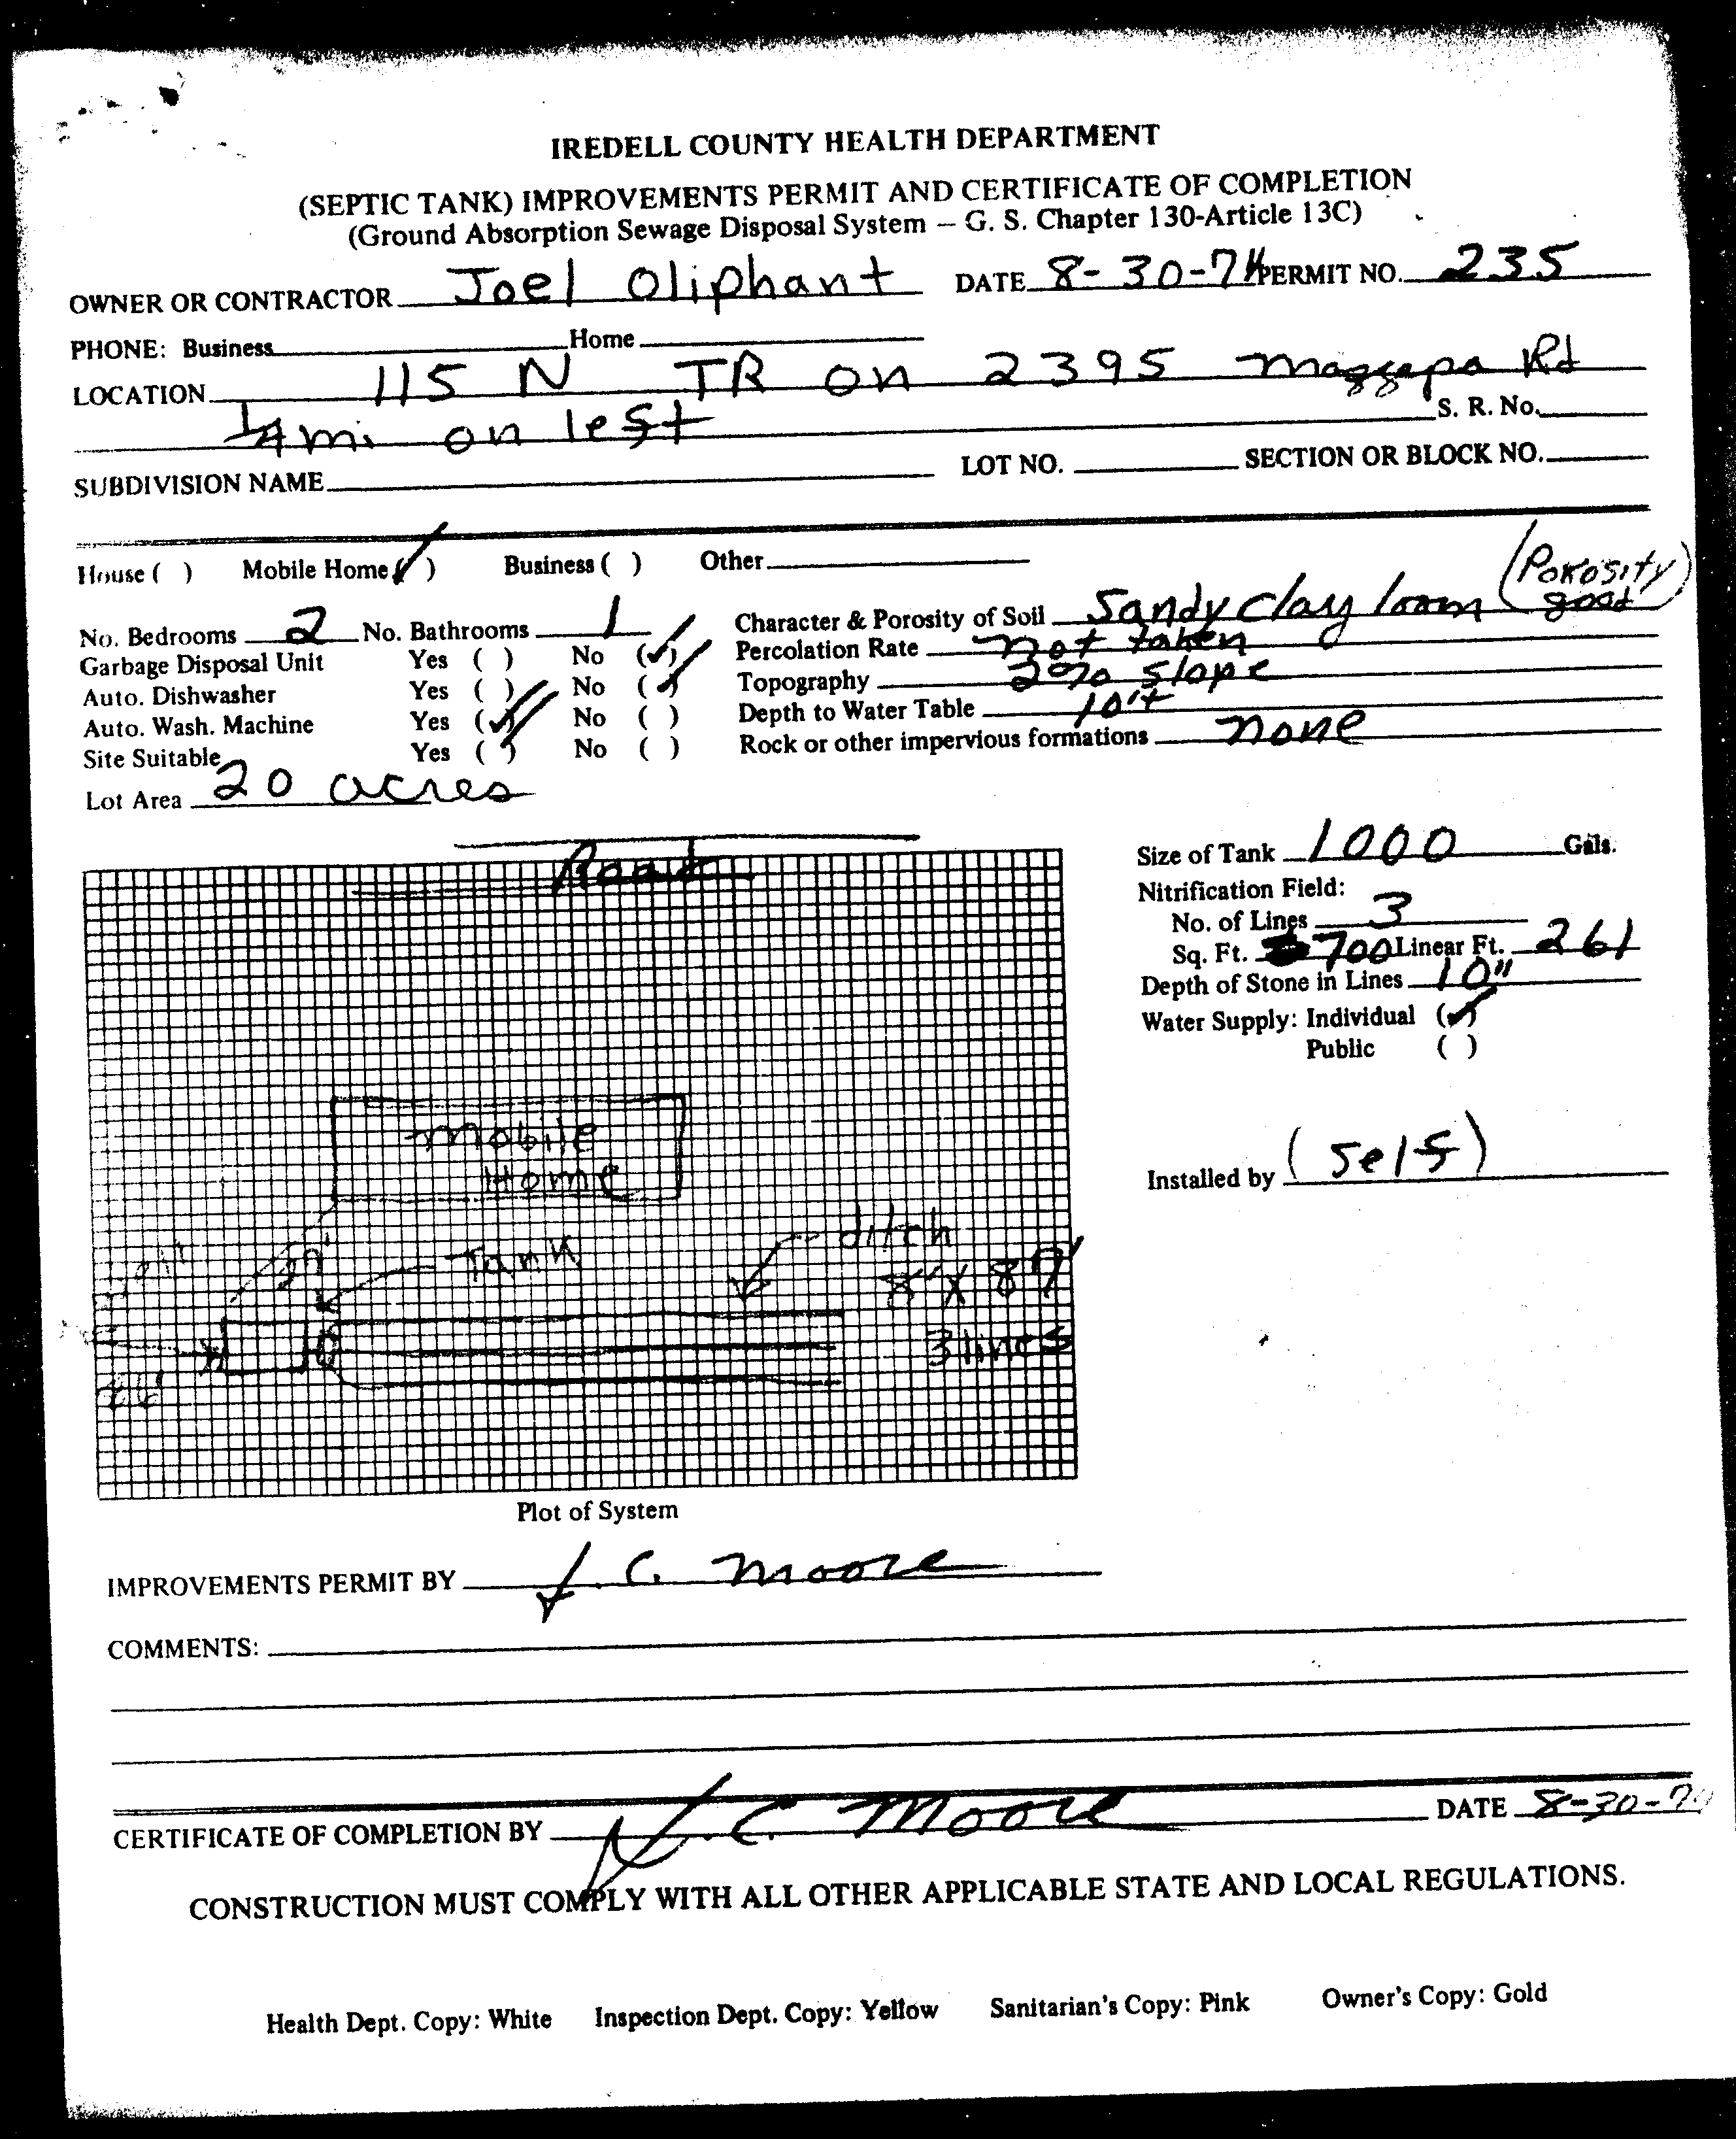 IREDELL COUNTY HEALTH DEPARTMENT
(SEPTIC TANK) IMPROVEMENTS PERMIT AND CERTIFICATE OF COMPLETION
(Ground Absorption Sewage Disposal System — G. S. Chapter 130-Article 13C)
OWNER OR CONTRACTOR Joel Oliphant DATE 8-30-74 PERMIT NO. 235
PHONE: Business Home
LOCATION 115 N TR on 2395 Rd
1/4 mi. on left S. R. No.
SUBDIVISION NAME LOT NO. SECTION OR BLOCK NO.
House ( ) Mobile Home (✓) Business ( ) Other
No. Bedrooms 2 No. Bathrooms 1
Garbage Disposal Unit Yes ( ) No (✓)
Auto. Dishwasher Yes ( ) No (✓)
Auto. Wash. Machine Yes (✓) No ( )
Site Suitable Yes (✓) No ( )
Lot Area 20 acres
Character & Porosity of Soil Sandy clay loam (Porosity good)
Percolation Rate not taken
Topography 2% slope
Depth to Water Table 10'+
Rock or other impervious formations none
Road
Mobile
Home
Tank
ditch
8' x 87'
3 lines
Plot of System
Size of Tank 1000 Gals.
Nitrification Field:
No. of Lines 3
Sq. Ft. 700 Linear Ft. 261
Depth of Stone in Lines 10"
Water Supply: Individual (✓)
Public ( )
Installed by (Self)
IMPROVEMENTS PERMIT BY C. Moore
COMMENTS:
CERTIFICATE OF COMPLETION BY C. Moore DATE 8-30-74
CONSTRUCTION MUST COMPLY WITH ALL OTHER APPLICABLE STATE AND LOCAL REGULATIONS.
Health Dept. Copy: White Inspection Dept. Copy: Yellow Sanitarian's Copy: Pink Owner's Copy: Gold